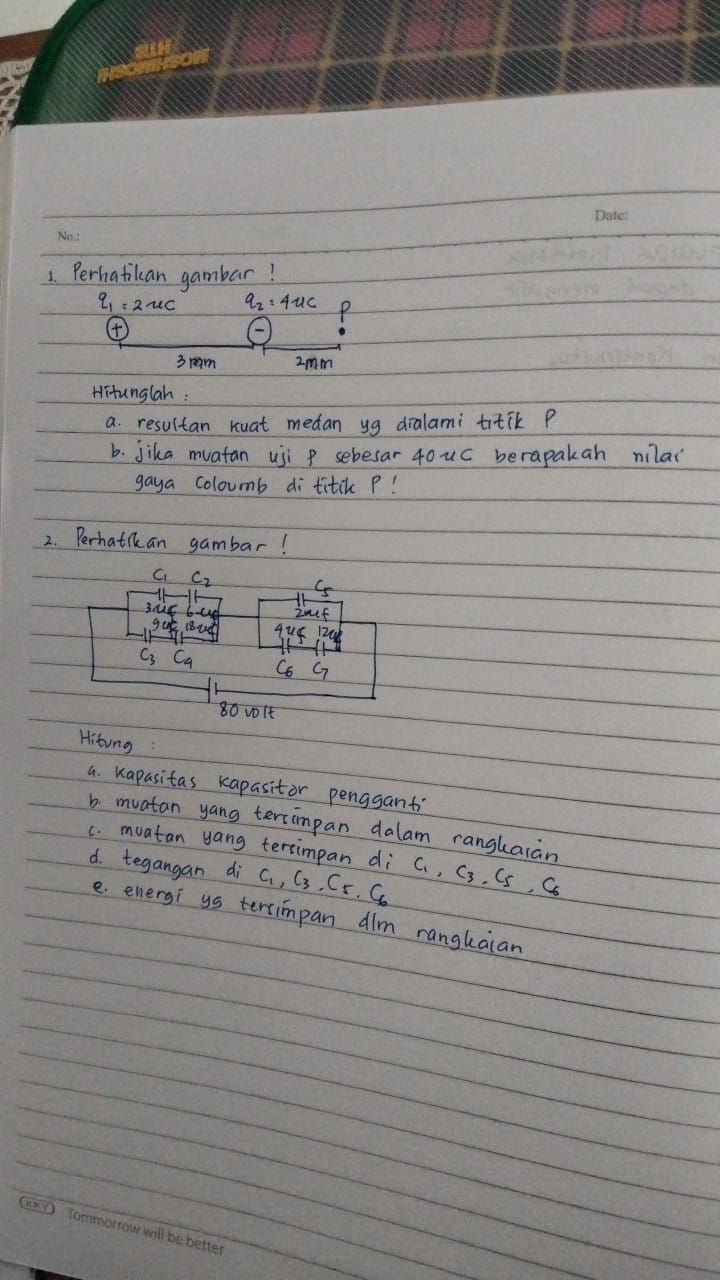 Date:
No.:
1. Perhatikan gambar !
q1 = 2 uc q2 = 4uc P
+ −
3 mm 2mm
Hitunglah :
a. resultan kuat medan yg dialami titik P
b. jika muatan uji P sebesar 40 uc berapakah nilai
gaya Coloumb di titik P !
2. Perhatikan gambar !
C1 C2 C5
3uf 6uf 2uf
9uf 18uf 4uf 12uf
C3 C4 C6 C7
80 volt
Hitung :
a. kapasitas kapasitor pengganti
b. muatan yang tersimpan dalam rangkaian
c. muatan yang tersimpan di C1, C3, C5, C6
d. tegangan di C1, C3, C5, C6
e. energi yg tersimpan dlm rangkaian
KKY Tommorrow will be better